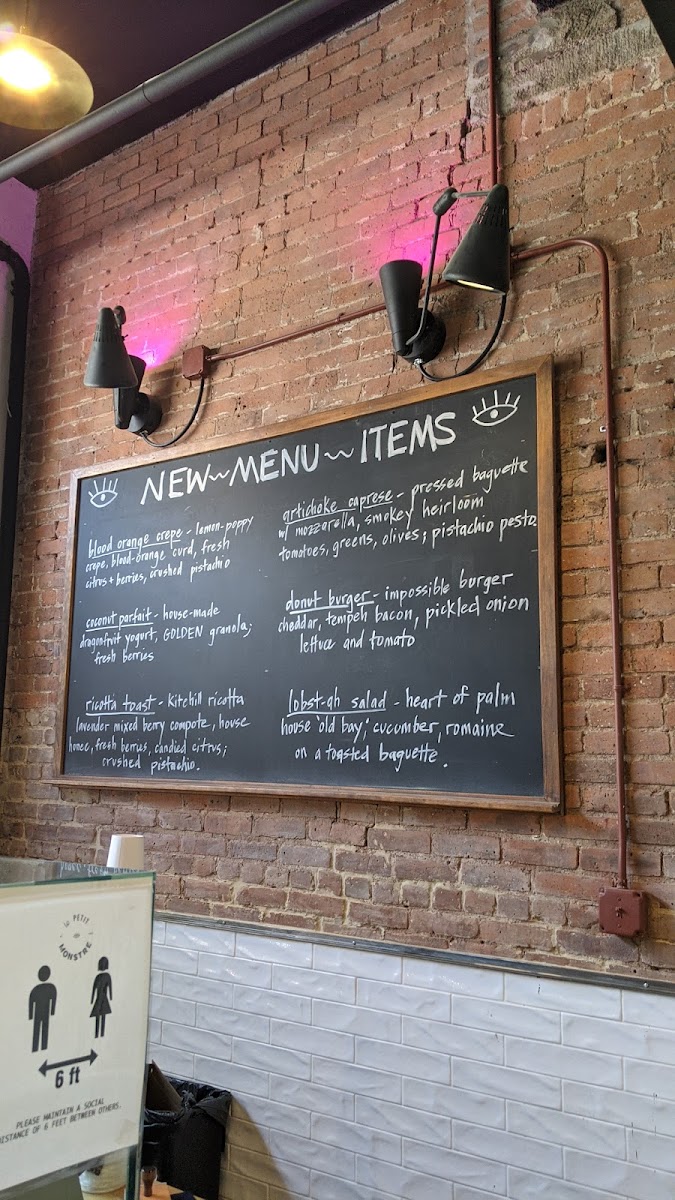 NEW~MENU~ITEMS
blood orange crepe - lemon-poppy
crepe, blood-orange curd, fresh
citrus + berries, crushed pistachio
coconut parfait - house-made
dragonfruit yogurt, GOLDEN granola;
fresh berries
ricotta toast - kitehill ricotta
lavender mixed berry compote, house
honee, fresh berries, candied citrus;
crushed pistachio.
artichoke caprese - pressed baguette
w/ mozzarella, smokey heirloom
tomatoes, greens, olives; pistachio pesto
donut burger - impossible burger
cheddar, tempeh bacon, pickled onion
lettuce and tomato
lobst-ah salad - heart of palm
house 'old bay,' cucumber, romaine
on a toasted baguette.
LE PETIT
MONSTRE
6 ft
PLEASE MAINTAIN A SOCIAL
DISTANCE OF 6 FEET BETWEEN OTHERS.